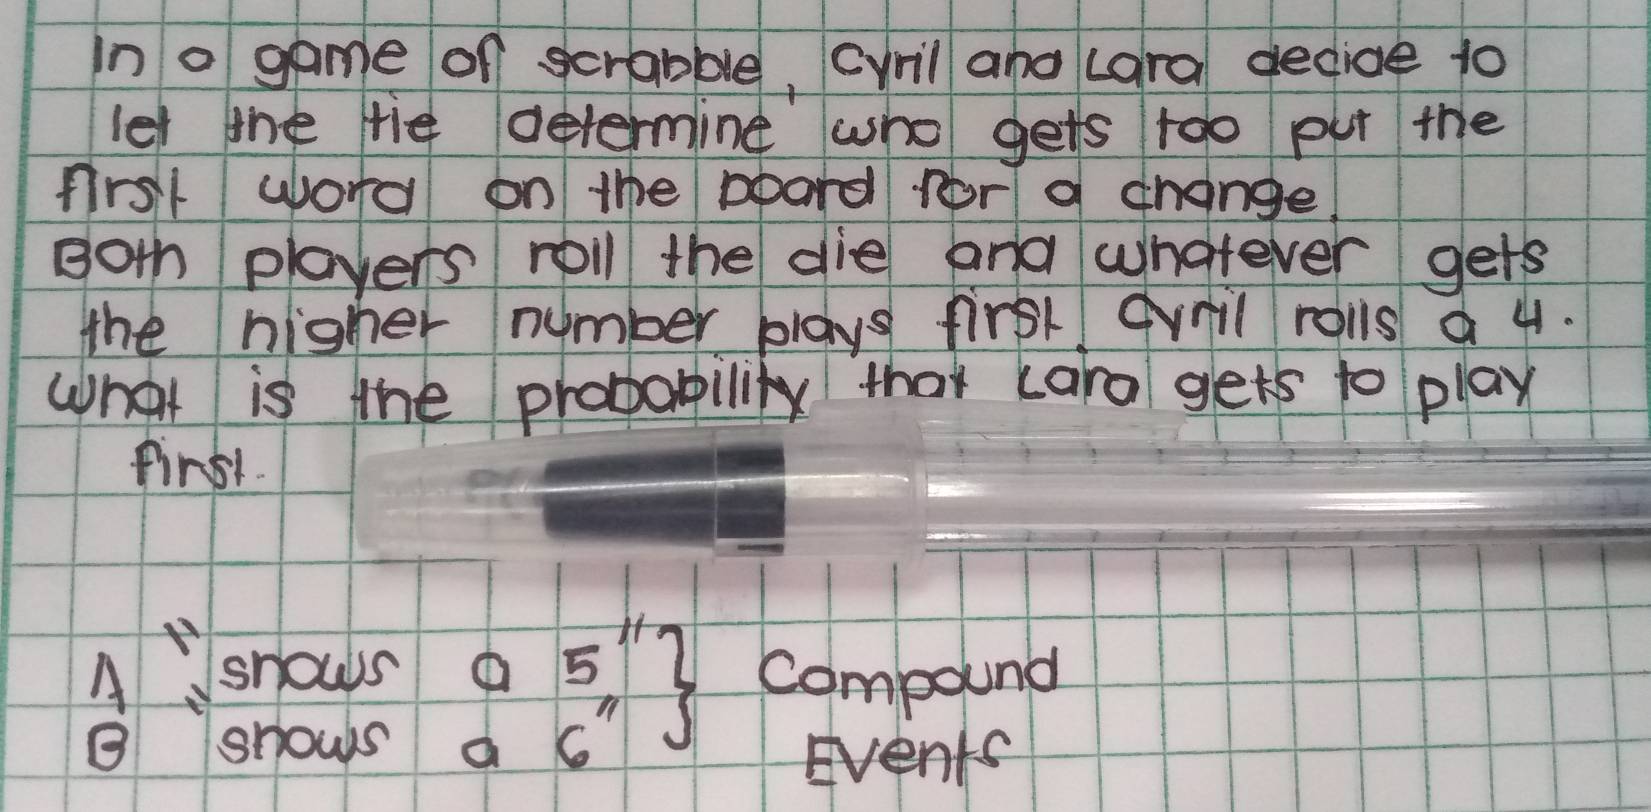 In a game of scrabble, Cyril and Lara decide to
let the tie determine who gets too put the
first word on the board for a change.
Both players roll the die and whatever gets
the higher number plays first. Cyril rolls a 4.
What is the probability that Lara gets to play
first.
A "shows a 5" } Compound
B "shows a 6" Events